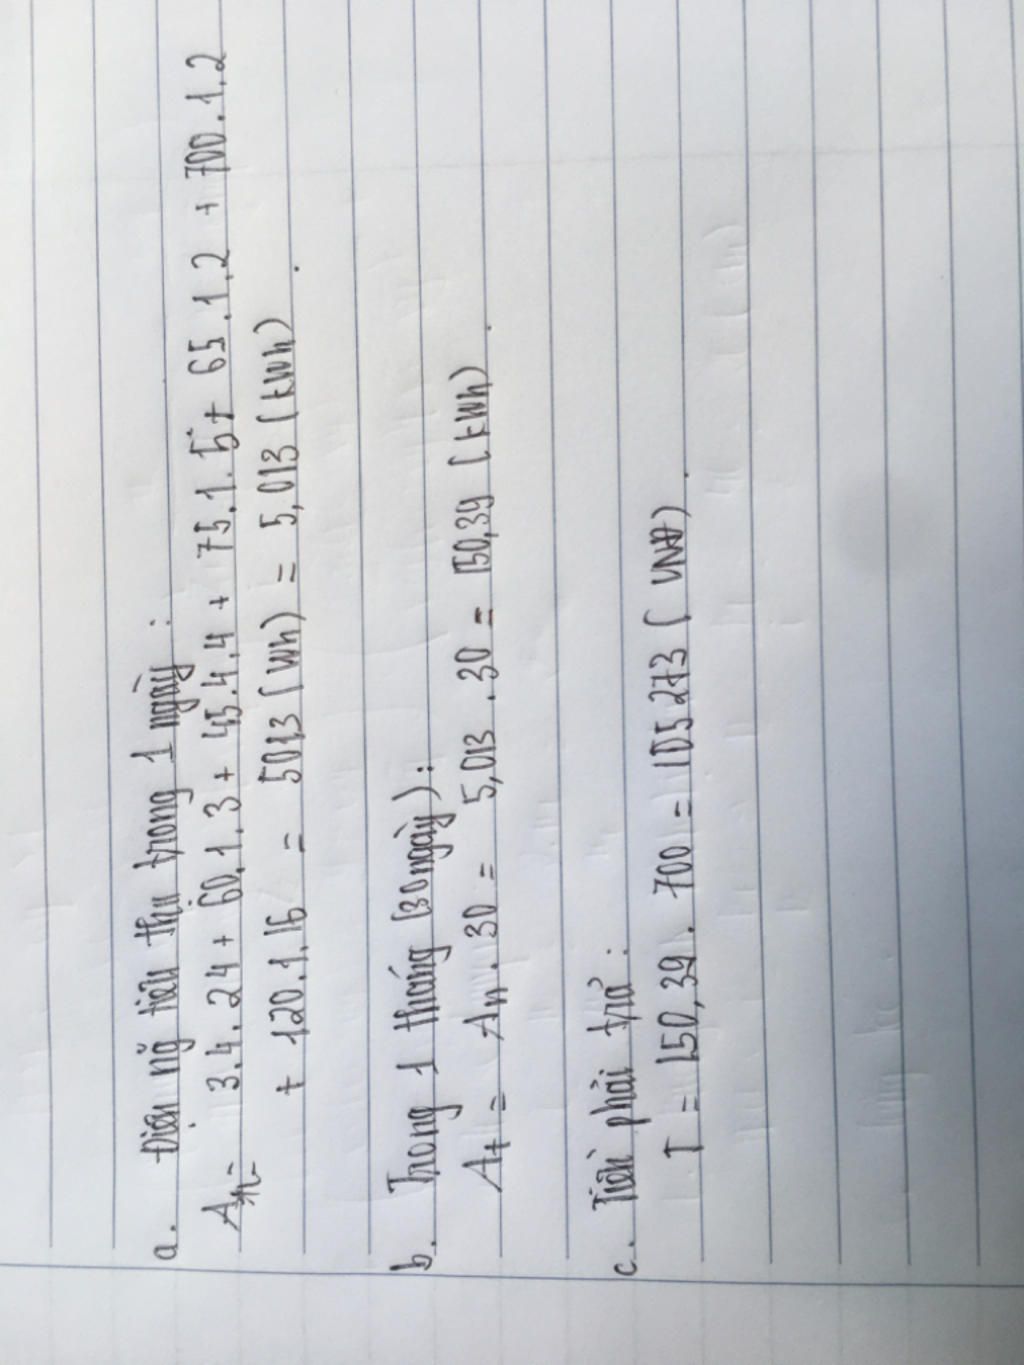 a. Điện ng̃ tiêu thụ trong 1 ngày :
An = 3.4.24 + 60.1.3 + 45.4.4 + 75.1.5 + 65.1.2 + 700.1.2
+ 120.1.16 = 5013 (Wh) = 5,013 (kWh) .
b. Trong 1 tháng (30 ngày) :
At = An . 30 = 5,013 . 30 = 150,39 (kWh) .
c. Tiền phải trả :
T = 150,39 . 700 = 105 273 ( VNĐ) .